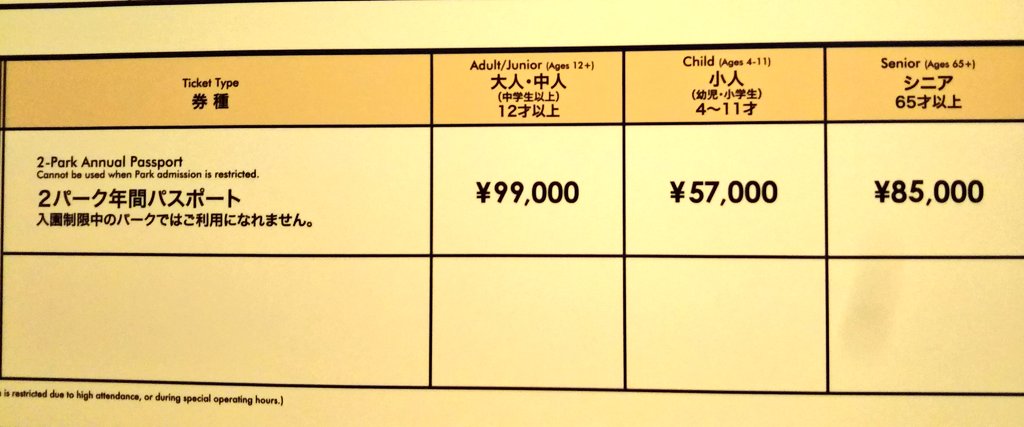 Ticket Type
券種
Adult/Junior (Ages 12+)
大人・中人
(中学生以上)
12才以上
Child (Ages 4-11)
小人
(幼児・小学生)
4～11才
Senior (Ages 65+)
シニア
65才以上
2-Park Annual Passport
Cannot be used when Park admission is restricted.
2パーク年間パスポート
入園制限中のパークではご利用になれません。
¥99,000
¥57,000
¥85,000
is restricted due to high attendance, or during special operating hours.)